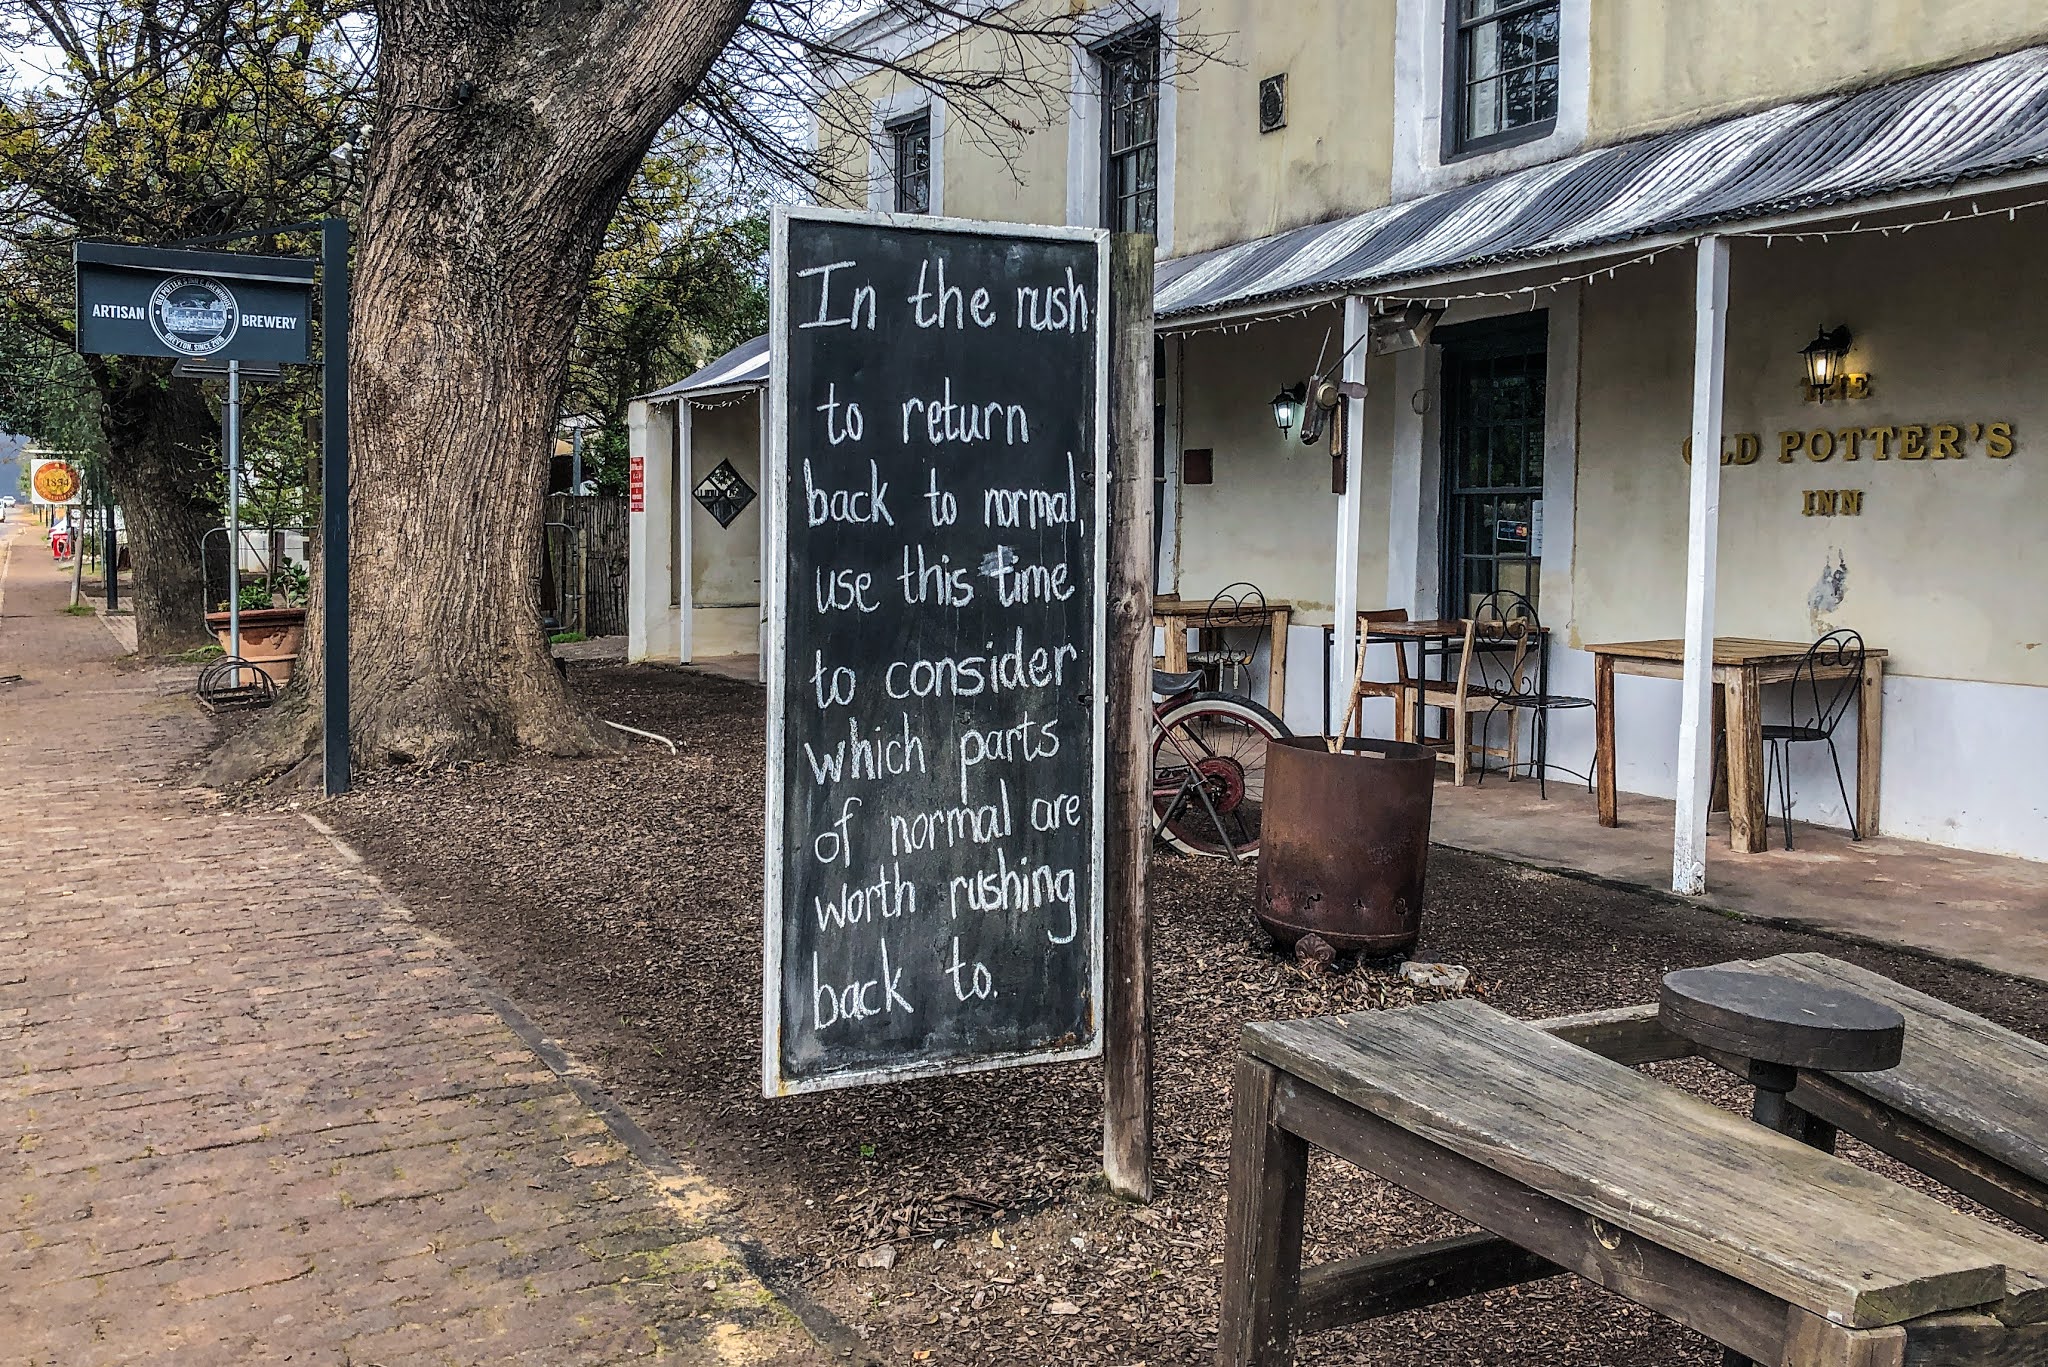 ARTISAN
OLD POTTER'S INN & BREWHOUSE
GREYTON, SINCE 2016
BREWERY
1854
In the rush
to return
back to normal,
use this time
to consider
which parts
of normal are
worth rushing
back to.
THE
OLD POTTER'S
INN